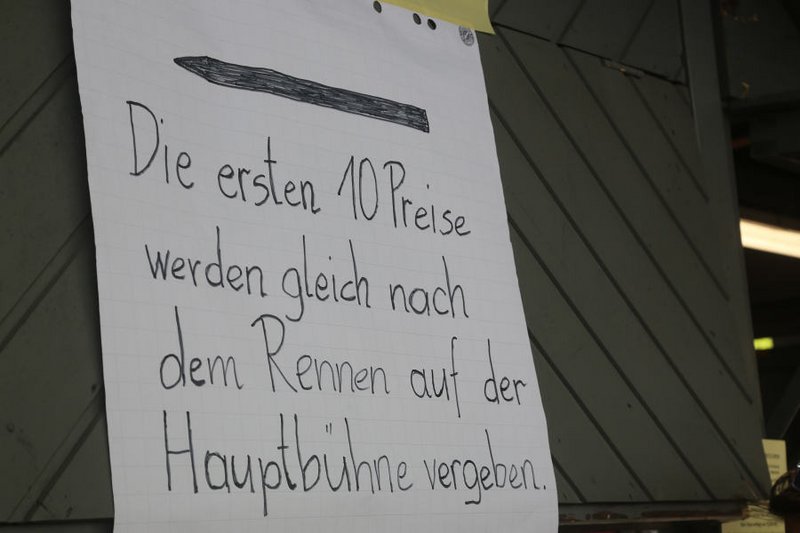 Die ersten 10 Preise
werden gleich nach
dem Rennen auf der
Hauptbühne vergeben.